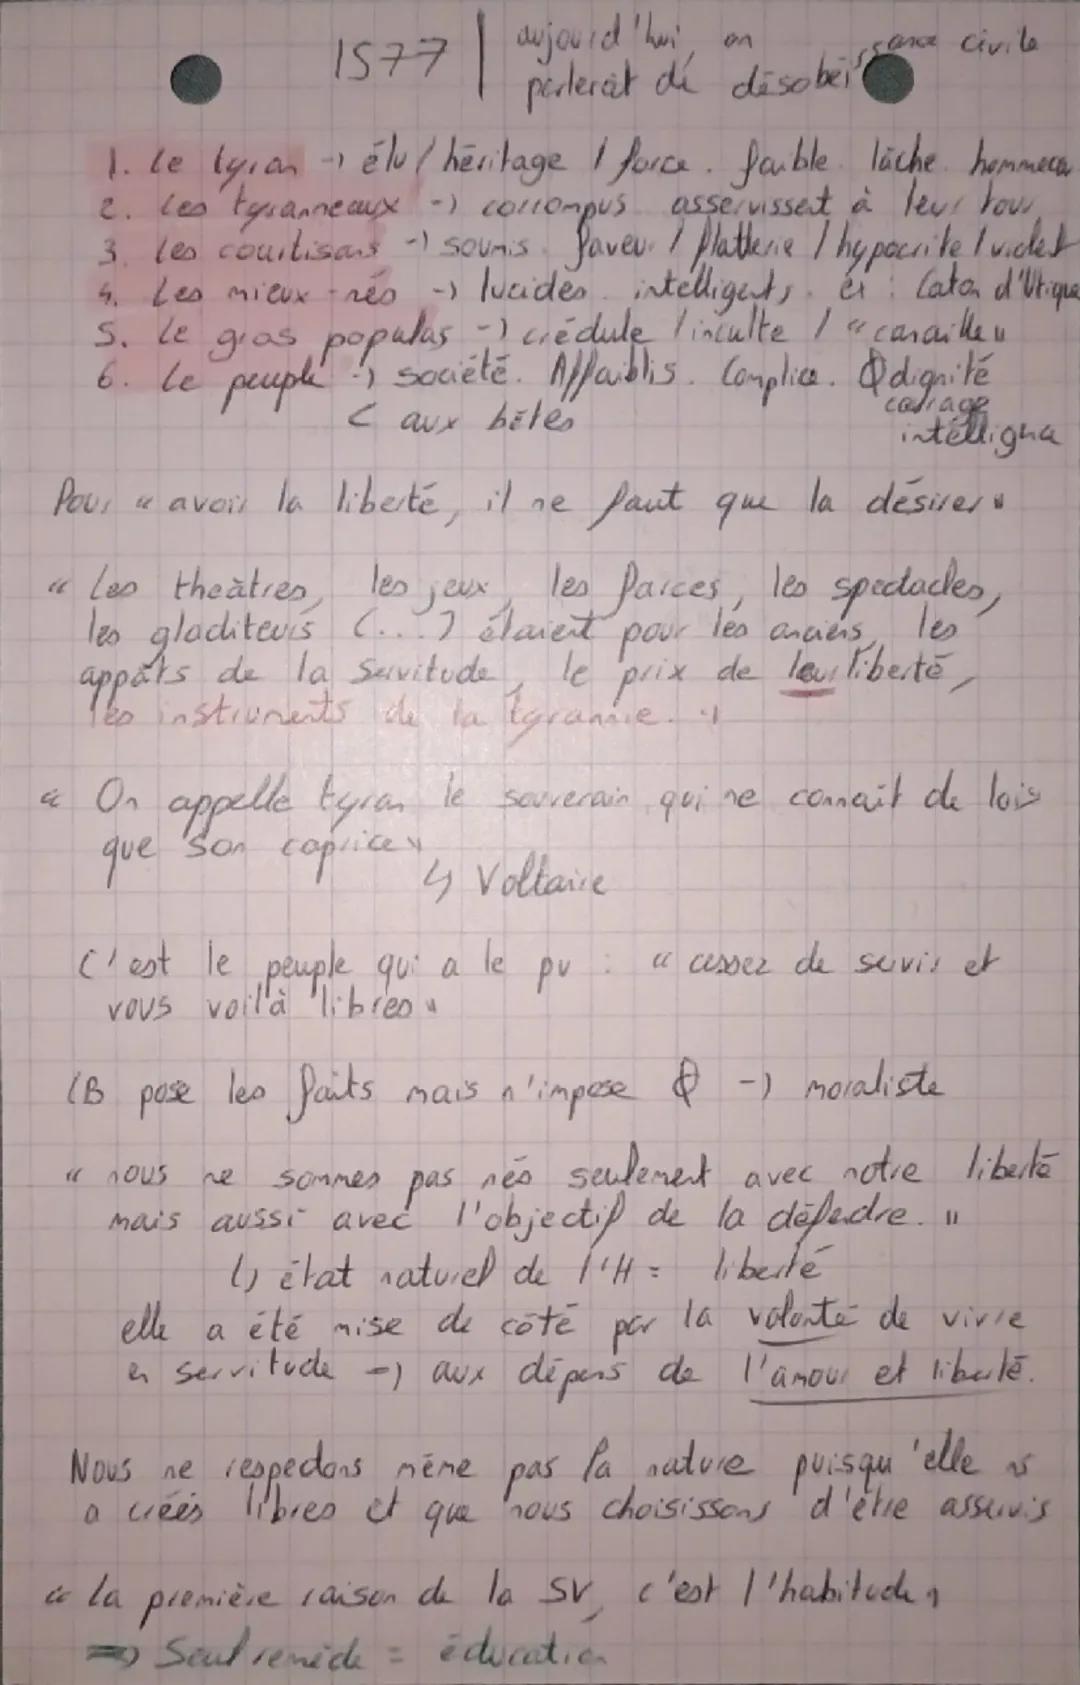 1577 | aujourd'hui, on
parlerait de désobéissance civile
1. Le tyran → élu / héritage / force. faible. lâche. hommeca
2. Les tyranneaux → corrompus asservissent à leur tour
3. Les courtisans → soumis. faveur / flatterie / hypocrite /
4. Les mieux-nés → lucides. intelligents. ex : Caton d'Utique
5. Le gros populas → crédule / inculte / "canaille"
6. Le peuple → société. Affaiblis. Complice. Ø dignité
courage
< aux bêtes
Pour "avoir la liberté, il ne faut que la désirer"
"Les theâtres, les jeux, les farces, les spectacles,
les gladiteurs (...) étaient pour les anciens, les
appâts de la Servitude, le prix de leur liberté,
les instruments de la tyrannie."
"On appelle tyran le souverain qui ne connait de lois
que son caprice"
↳ Voltaire
C'est le peuple qui a le pv : "cessez de servir et
vous voilà libres"
LB pose les faits mais n'impose Ø → moraliste
"nous ne sommes pas nés seulement avec notre liberté
mais aussi avec l'objectif de la défendre."
↳ état naturel de l'H = liberté
elle a été mise de côté par la volonté de vivre
en servitude → aux dépens de l'amour et liberté.
Nous ne respectons même pas la nature puisqu'elle ns
a créés libres et que nous choisissons d'être asservis
"la première raison de la SV, c'est l'habitude"
⇒ Seul remède = éducation